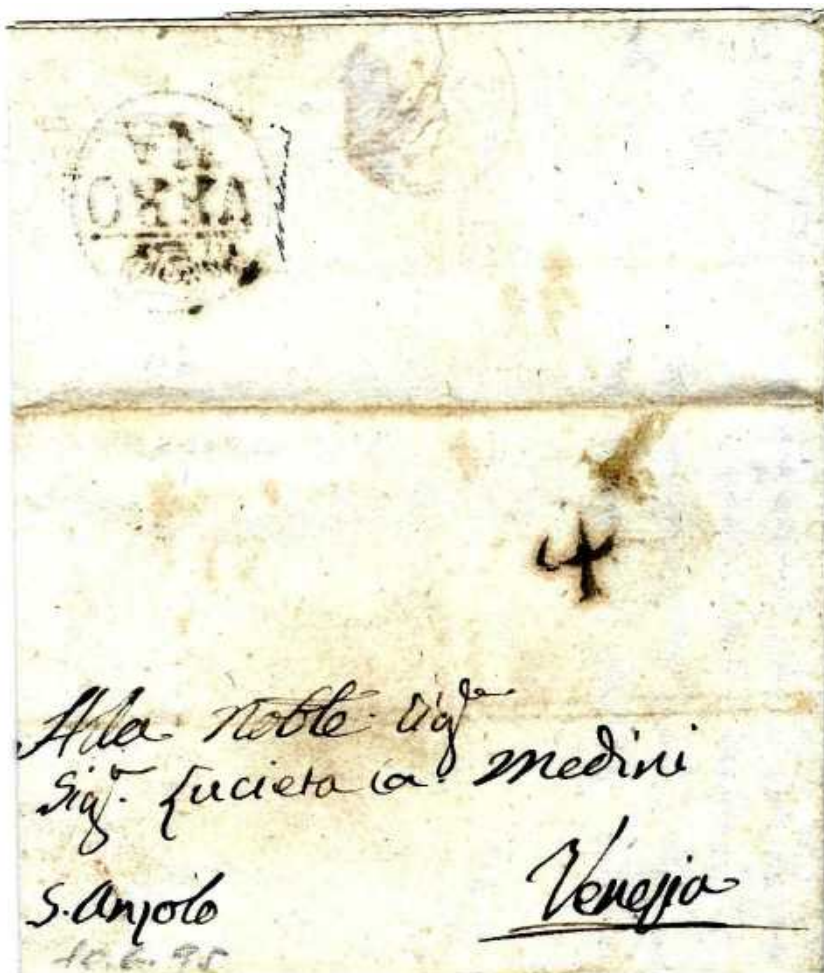 4
Alla Noble Sigra
Sigra Lucieta Ca Medini
S. Anzolo
Venezia
10.6.95